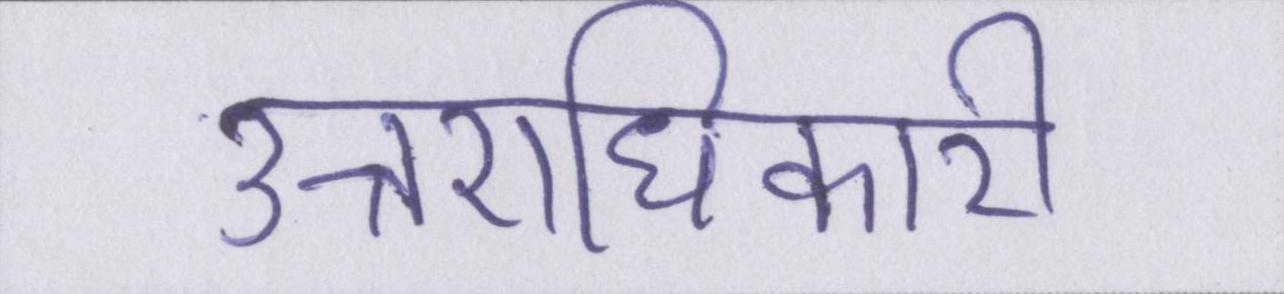 उत्तराधिकारी